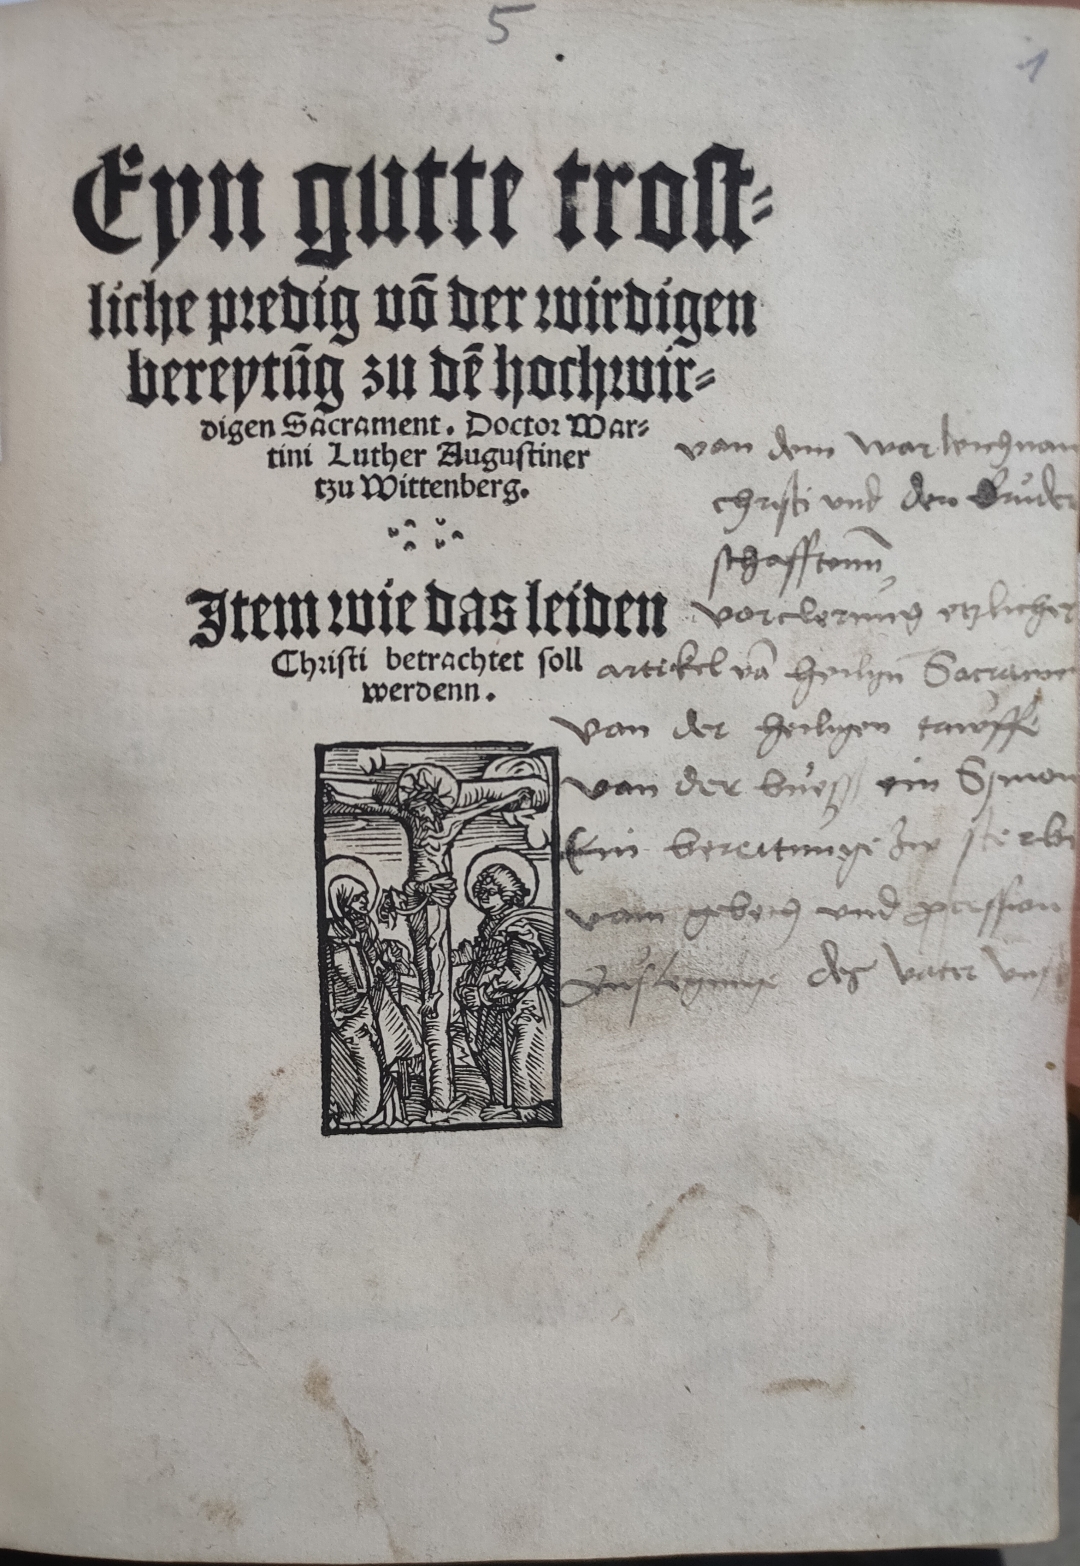 5
1
Eyn gutte trost⸗
liche predig vō der wirdigen
bereytūg zu dē hochwir⸗
digen Sacrament. Doctor Mar⸗
tini Luther Augustiner
tzu Wittenberg.
Item wie das leiden
Christi betrachtet soll
werdenn.
van dem war leichnam
christi und den Bruder
schafftenn
vorclerung etzlicher
artickel vā heilign Sacrame
van der heiligen tawffe
van der buess ein Srmon
Ein bereitunge zw sterbe
vam gebeth und procession
Auslegunge des vater vns